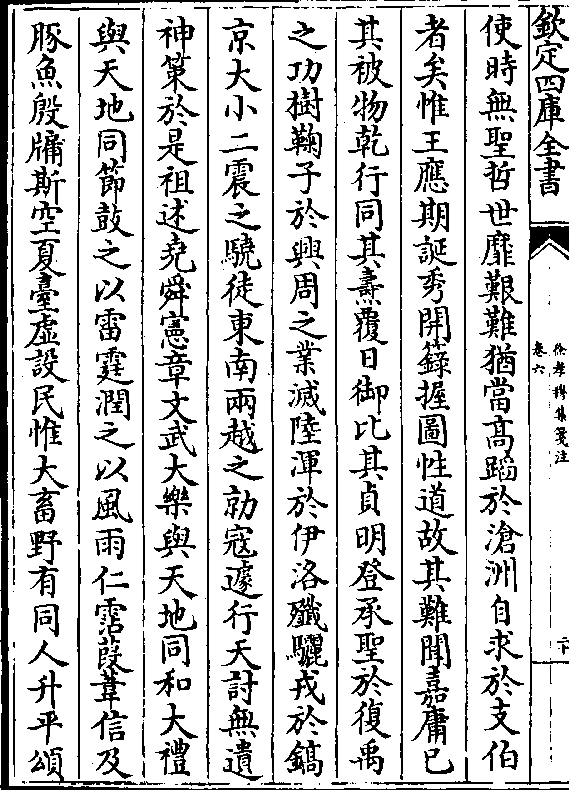 欽定四庫全書
徐孝穆集箋注
卷六
使時無聖哲世靡艱難猶當高蹈於滄洲自求於支伯
者矣惟王應期誕秀開籙握圖性道故其難聞嘉庸已
其被物乾行同其燾覆日御比其貞明登承聖於復禹
之功樹鞠子於興周之業滅陸渾於伊洛殲驪戎於鎬
京大小二震之驍徒東南兩越之勍寇遽行天討無遺
神策於是祖述堯舜憲章文武大樂與天地同和大禮
與天地同節鼓之以雷霆潤之以風雨仁霑葭葦信及
豚魚殷牖斯空夏臺虛設民惟大畜野有同人升平頌